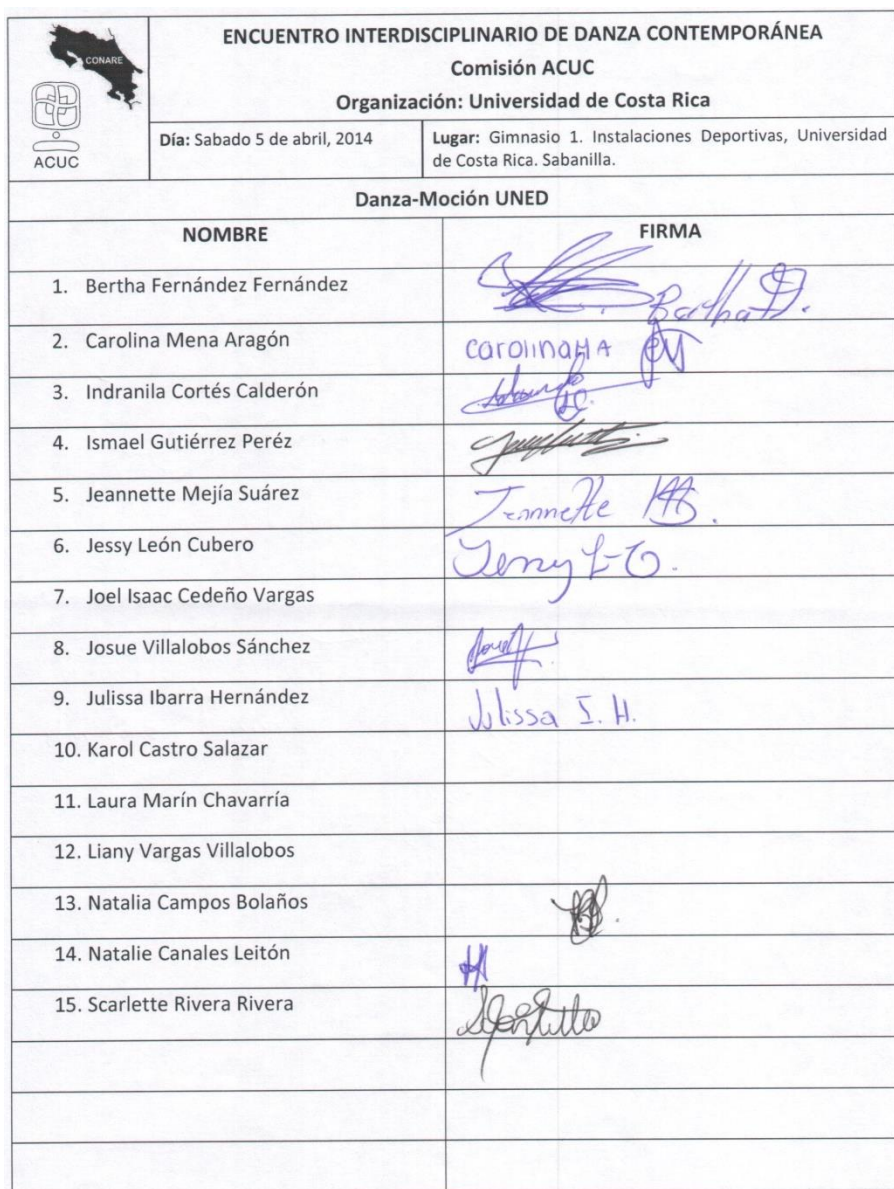 CONARE
ACUC
ENCUENTRO INTERDISCIPLINARIO DE DANZA CONTEMPORÁNEA
Comisión ACUC
Organización: Universidad de Costa Rica
Día: Sabado 5 de abril, 2014
Lugar: Gimnasio 1. Instalaciones Deportivas, Universidad
de Costa Rica. Sabanilla.
Danza-Moción UNED
NOMBRE FIRMA
1. Bertha Fernández Fernández Bertha
2. Carolina Mena Aragón CarolinaMA
3. Indranila Cortés Calderón
4. Ismael Gutiérrez Peréz
5. Jeannette Mejía Suárez Jeannette
6. Jessy León Cubero
7. Joel Isaac Cedeño Vargas
8. Josue Villalobos Sánchez
9. Julissa Ibarra Hernández Julissa I. H.
10. Karol Castro Salazar
11. Laura Marín Chavarría
12. Liany Vargas Villalobos
13. Natalia Campos Bolaños
14. Natalie Canales Leitón
15. Scarlette Rivera Rivera